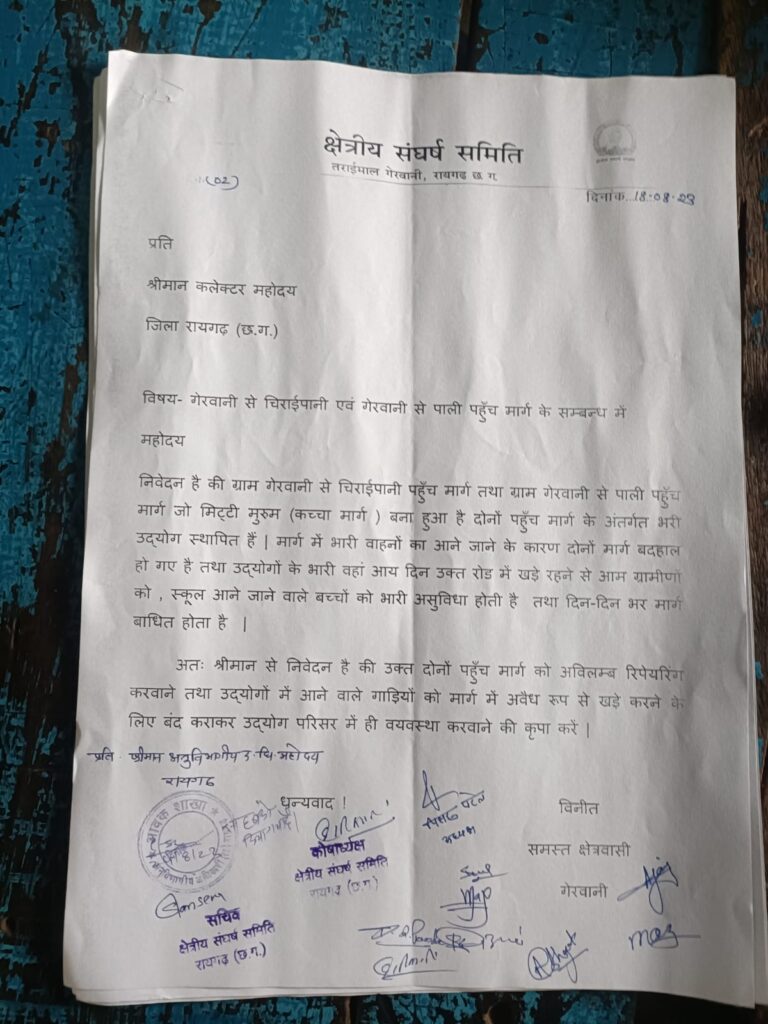 क्षेत्रीय संघर्ष समिति
तराईमाल गेरवानी, रायगढ़ छ ग
(02)
दिनांक...18-08-23
प्रति
श्रीमान कलेक्टर महोदय
जिला रायगढ़ (छ.ग.)
विषय- गेरवानी से चिराईपानी एवं गेरवानी से पाली पहुँच मार्ग के सम्बन्ध में
महोदय
निवेदन है की ग्राम गेरवानी से चिराईपानी पहुँच मार्ग तथा ग्राम गेरवानी से पाली पहुँच
मार्ग जो मिट्टी मुरुम (कच्चा मार्ग ) बना हुआ है दोनों पहुँच मार्ग के अंतर्गत भरी
उद्योग स्थापित हैं | मार्ग में भारी वाहनों का आने जाने के कारण दोनों मार्ग बदहाल
हो गए है तथा उद्योगों के भारी वहां आय दिन उक्त रोड में खड़े रहने से आम ग्रामीणों
को , स्कूल आने जाने वाले बच्चों को भारी असुविधा होती है तथा दिन-दिन भर मार्ग
बाधित होता है |
अतः श्रीमान से निवेदन है की उक्त दोनों पहुँच मार्ग को अविलम्ब रिपेयरिंग
करवाने तथा उद्योगों में आने वाले गाड़ियों को मार्ग में अवैध रूप से खड़े करने के
लिए बंद कराकर उद्योग परिसर में ही वयवस्था करवाने की कृपा करें |
प्रति श्रीमान अनुविभागीय महोदय
रायगढ
धन्यवाद !
विनीत
अध्यक्ष
समस्त क्षेत्रवासी
गेरवानी
आवक शाखा
कोषाध्यक्ष
क्षेत्रीय संघर्ष समिति
रायगढ़ (छ.ग)
सचिव
क्षेत्रीय संघर्ष समिति
रायगढ़ (छ.ग.)